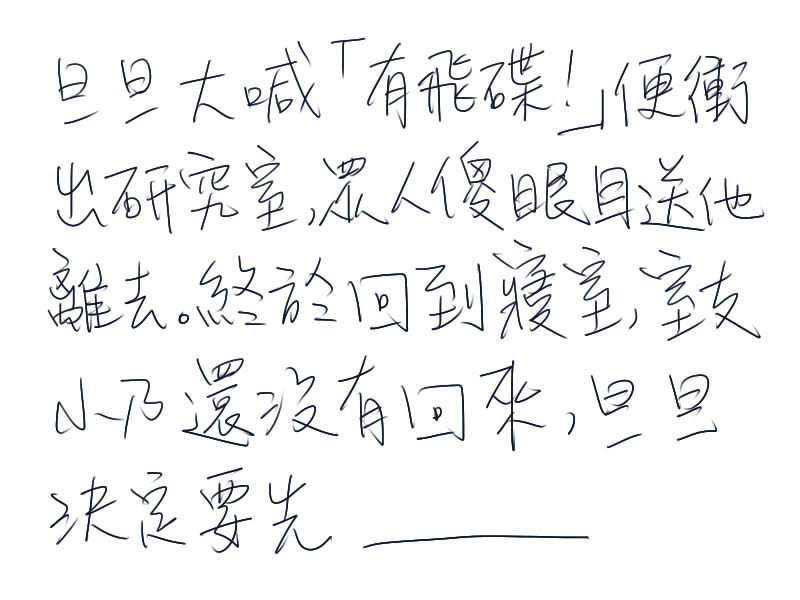 旦旦大喊「有飛碟!」便衝
出研究室,眾人傻眼目送他
離去。終於回到寢室,室友
小乃還沒有回來,旦旦
決定要先